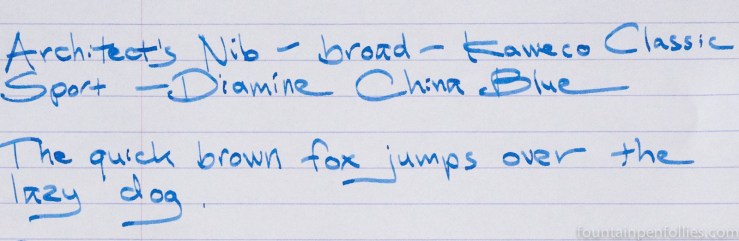 Architect's Nib - broad - Kaweco Classic
Sport - Diamine China Blue
The quick brown fox jumps over the
lazy dog.
fountainpenfollies.com